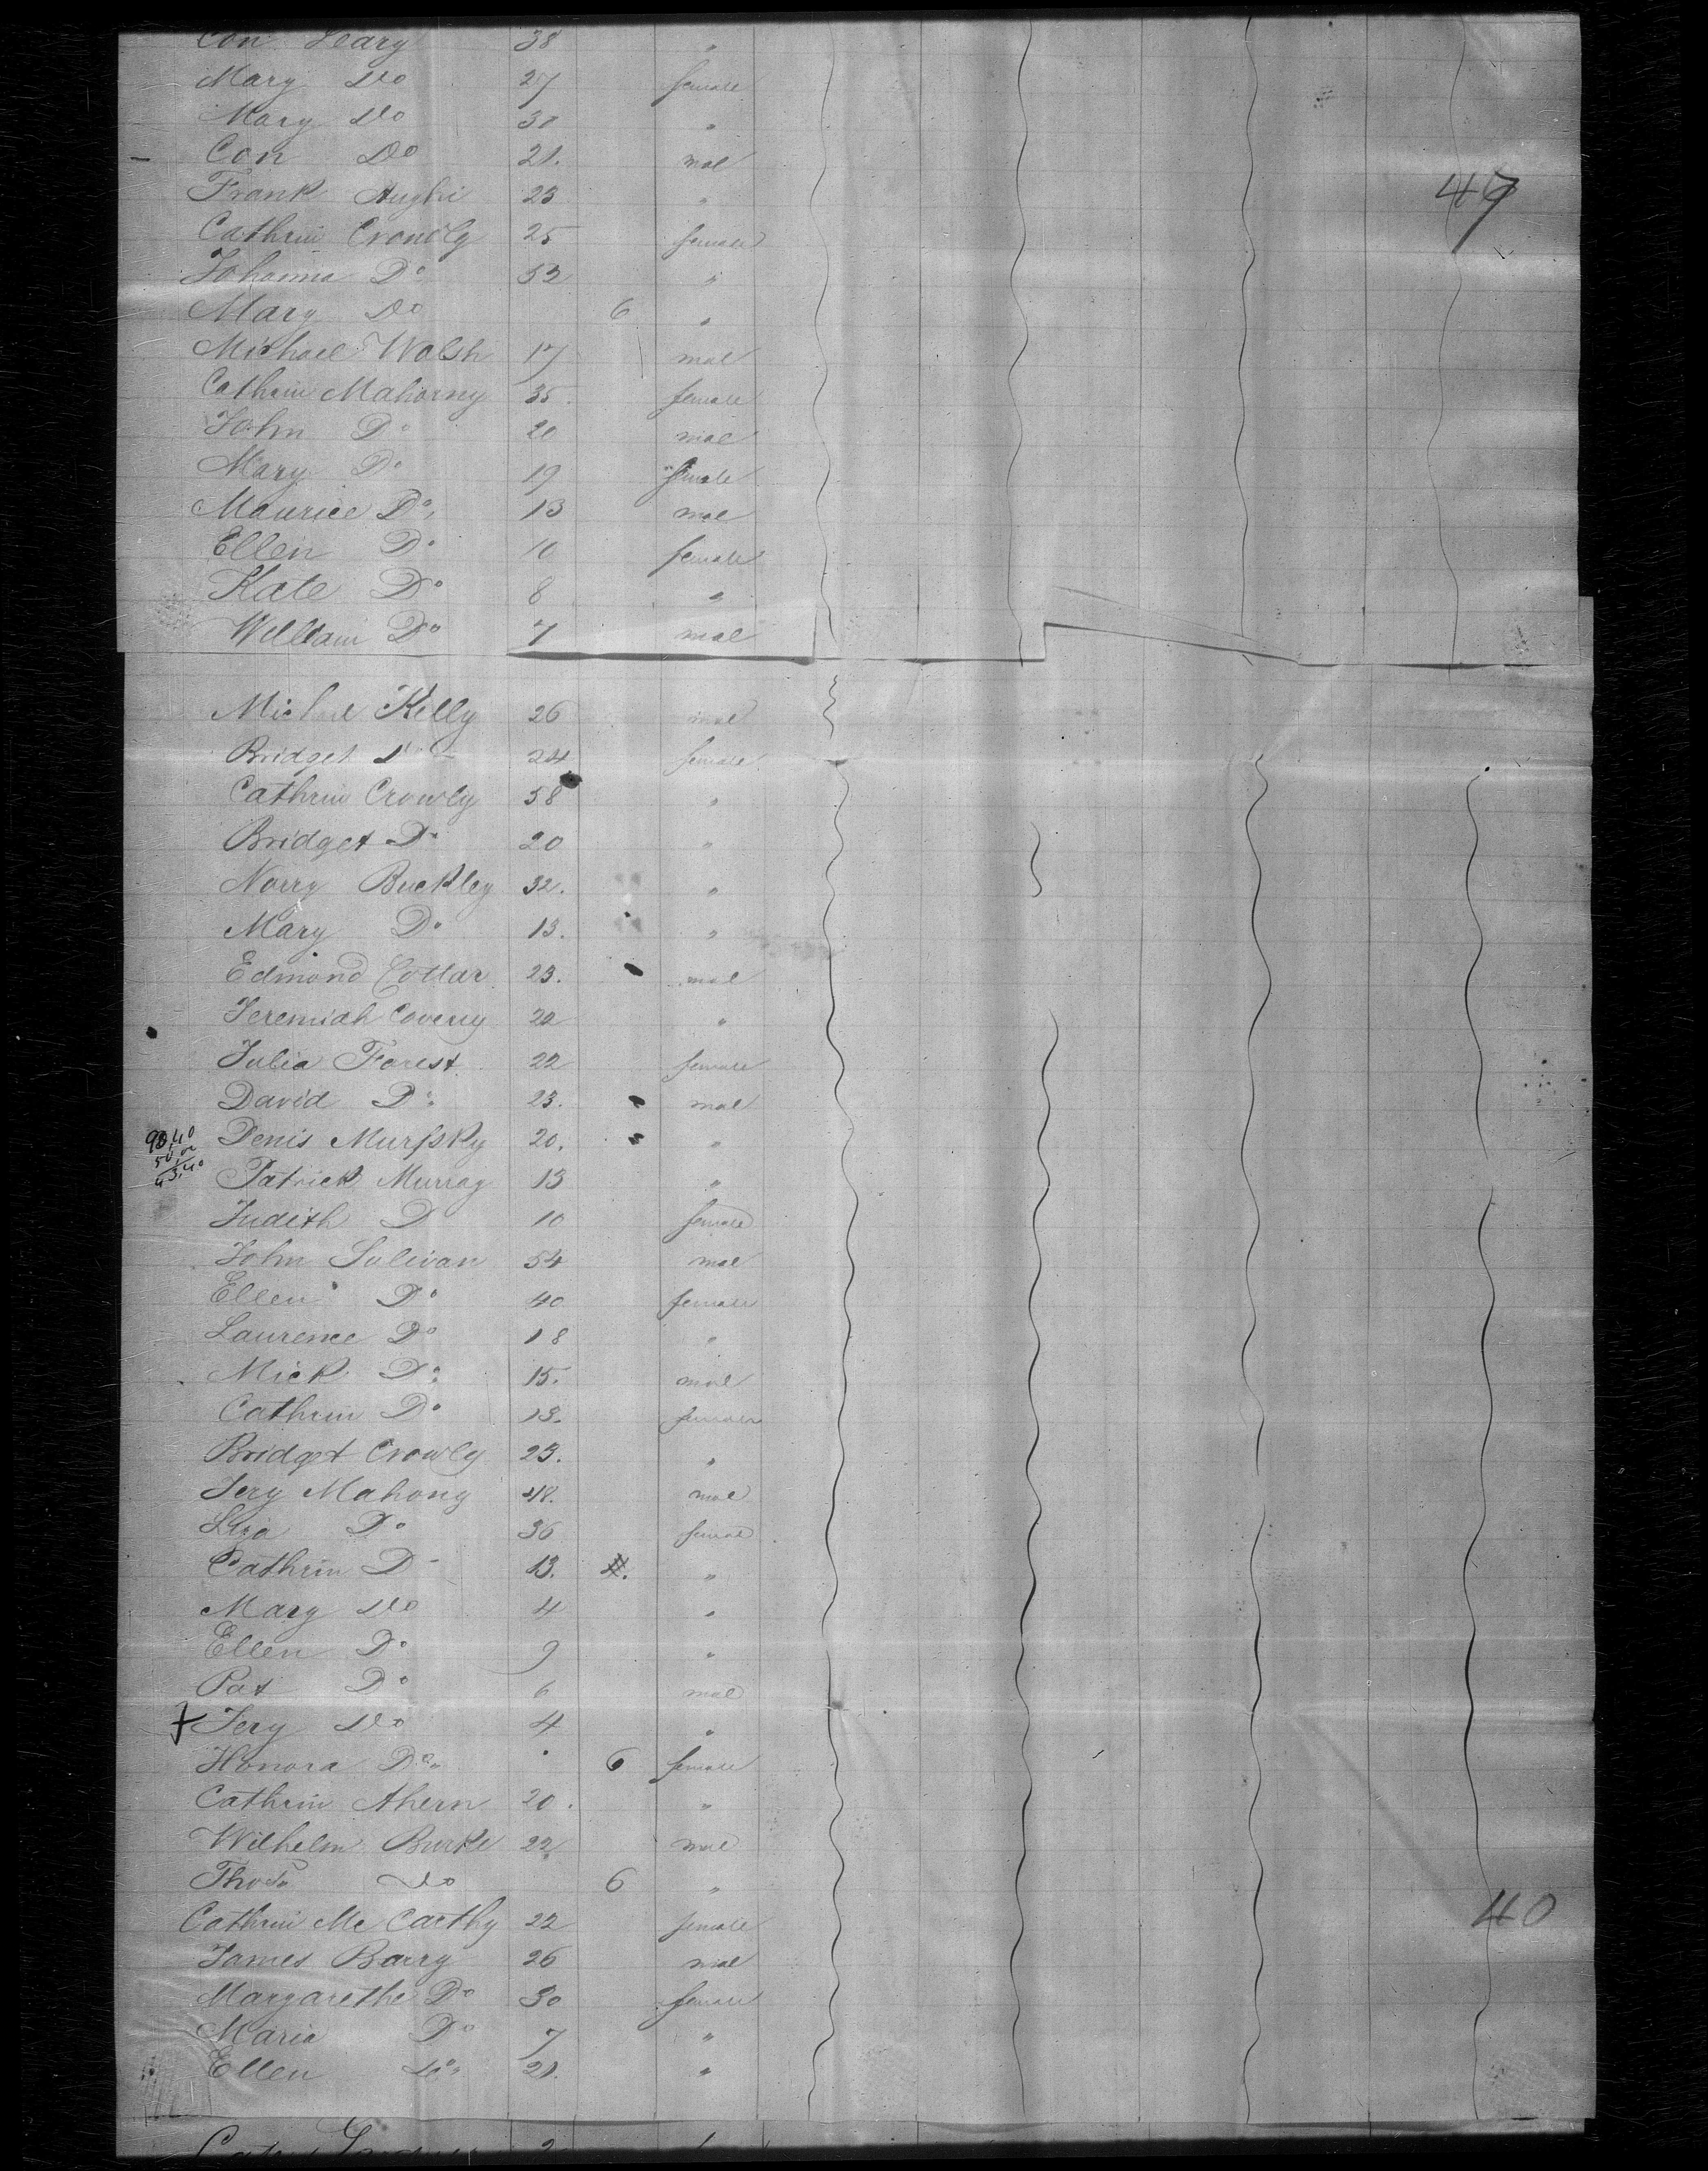 Con Leary 38 "
Mary Do 27 female
Mary Do 30 "
Con Do 21. mal
Frank 23 "
Cathrin Crowly 25 female
Johanna Do 52 "
Mary Do 6 "
Michael Walsh 17 mal
Cathrin Mahorny 35. female
John Do 20 mal
Mary Do 19 female
Maurice Do, 13 mal
Ellen Do 10 female
Kate Do 8 "
William Do 7 mal
47
Michael Kelly 26 mal
Bridget Do 24 female
Cathrin Crowly 58 "
Bridget Do 20 "
Norry Buckley 32. "
Mary Do 13. "
Edmond Cottar 23. mal
Jeremiah Coveny 20 "
Julia Forest 22 female
David Do 23. mal
Denis Murpsky 20. "
Patrick Murray 13 "
Judith D 10 female
John Sulivan 54 mal
Ellen Do 40 female
Laurence Do 18 "
Mick Do 15. mal
Cathrin Do 13. female
Bridget Crowly 23. "
Jery Mahony 48. mal
Do 36 female
Cathrin D 13. "
Mary Do 4 "
Ellen Do 9 "
Pat Do 6 mal
Jery Do 4 "
Honora Do 6 female
Cathrin Ahern 20. "
Wilhelm Burke 22 mal
Thos Do 6 "
Cathrin Mc Carthy 22 female
40
James Barry 26 mal
Margarethe Do 30 female
Maria Do 7 "
Ellen Do 21. "